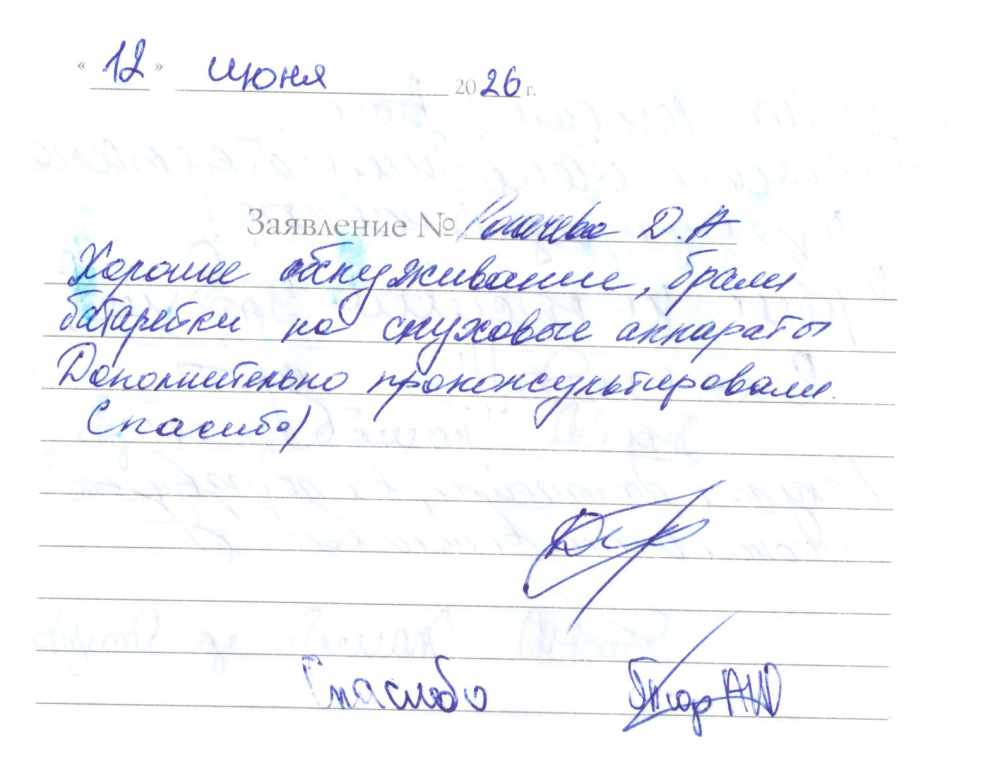 « 12 » июня 2026 г.
Заявление № Д. А
Хорошее обслуживание, брали
батарейки на слуховые аппараты
Дополнительно проконсультировали.
Спасибо)
Спасибо